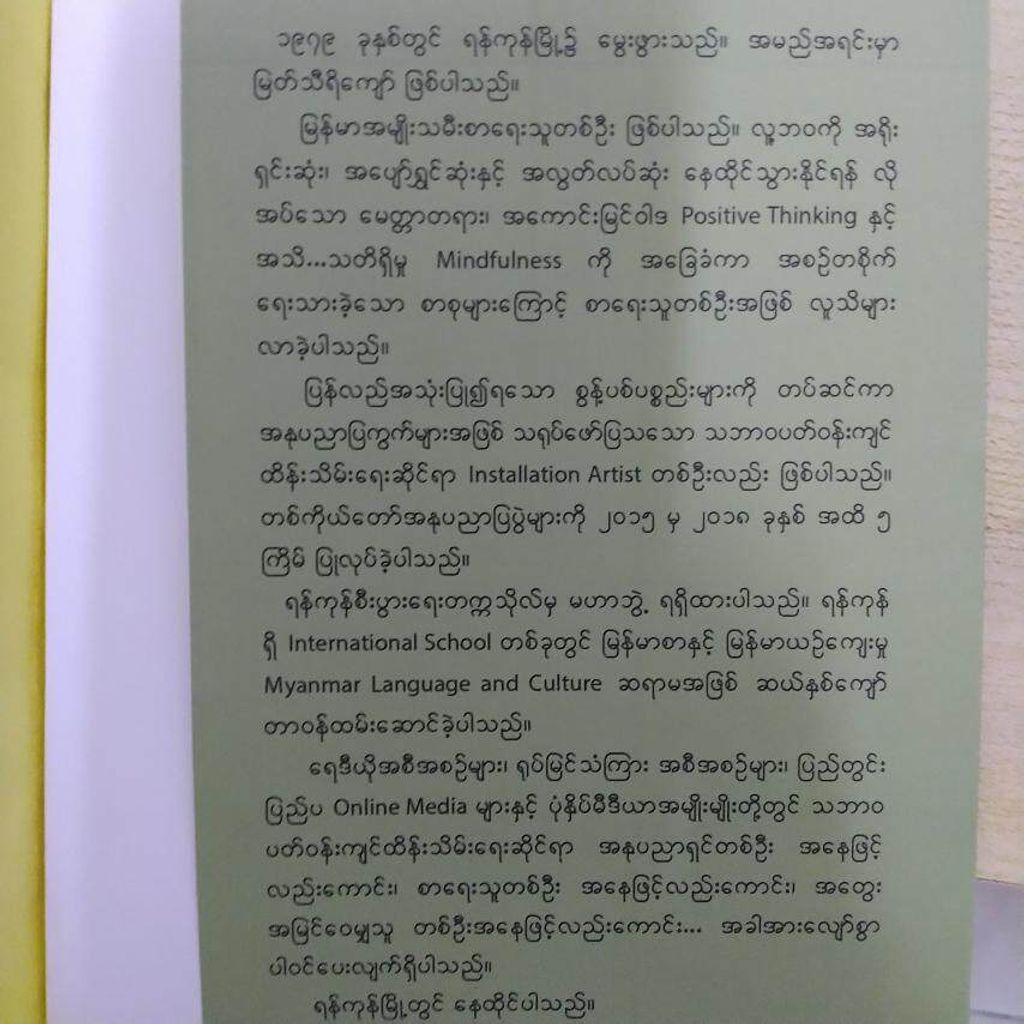 ၁၉၇၉ ခုနှစ်တွင် ရန်ကုန်မြို့၌ မွေးဖွားသည်။ အမည်အရင်းမှာ
မြတ်သီရိကျော် ဖြစ်ပါသည်။
မြန်မာအမျိုးသမီးစာရေးသူတစ်ဦး ဖြစ်ပါသည်။ လူ့ဘဝကို အရိုး
ရှင်းဆုံး၊ အပျော်ရွှင်ဆုံးနှင့် အလွတ်လပ်ဆုံး နေထိုင်သွားနိုင်ရန် လို
အပ်သော မေတ္တာတရား၊ အကောင်းမြင်ဝါဒ Positive Thinking နှင့်
အသိ...သတိရှိမှု Mindfulness ကို အခြေခံကာ အစဉ်တစိုက်
ရေးသားခဲ့သော စာစုများကြောင့် စာရေးသူတစ်ဦးအဖြစ် လူသိများ
လာခဲ့ပါသည်။
ပြန်လည်အသုံးပြု၍ရသော စွန့်ပစ်ပစ္စည်းများကို တပ်ဆင်ကာ
အနုပညာပြကွက်များအဖြစ် သရုပ်ဖော်ပြသသော သဘာဝပတ်ဝန်းကျင်
ထိန်းသိမ်းရေးဆိုင်ရာ Installation Artist တစ်ဦးလည်း ဖြစ်ပါသည်။
တစ်ကိုယ်တော်အနုပညာပြပွဲများကို ၂၀၁၅ မှ ၂၀၁၈ ခုနှစ် အထိ ၅
ကြိမ် ပြုလုပ်ခဲ့ပါသည်။
ရန်ကုန်စီးပွားရေးတက္ကသိုလ်မှ မဟာဘွဲ့ ရရှိထားပါသည်။ ရန်ကုန်
ရှိ International School တစ်ခုတွင် မြန်မာစာနှင့် မြန်မာယဉ်ကျေးမှု
Myanmar Language and Culture ဆရာမအဖြစ် ဆယ်နှစ်ကျော်
တာဝန်ထမ်းဆောင်ခဲ့ပါသည်။
ရေဒီယိုအစီအစဉ်များ၊ ရုပ်မြင်သံကြား အစီအစဉ်များ၊ ပြည်တွင်း
ပြည်ပ Online Media များနှင့် ပုံနှိပ်မီဒီယာအမျိုးမျိုးတို့တွင် သဘာဝ
ပတ်ဝန်းကျင်ထိန်းသိမ်းရေးဆိုင်ရာ အနုပညာရှင်တစ်ဦး အနေဖြင့်
လည်းကောင်း၊ စာရေးသူတစ်ဦး အနေဖြင့်လည်းကောင်း၊ အတွေး
အမြင်ဝေမျှသူ တစ်ဦးအနေဖြင့်လည်းကောင်း... အခါအားလျော်စွာ
ပါဝင်ပေးလျက်ရှိပါသည်။
ရန်ကုန်မြို့တွင် နေထိုင်ပါသည်။